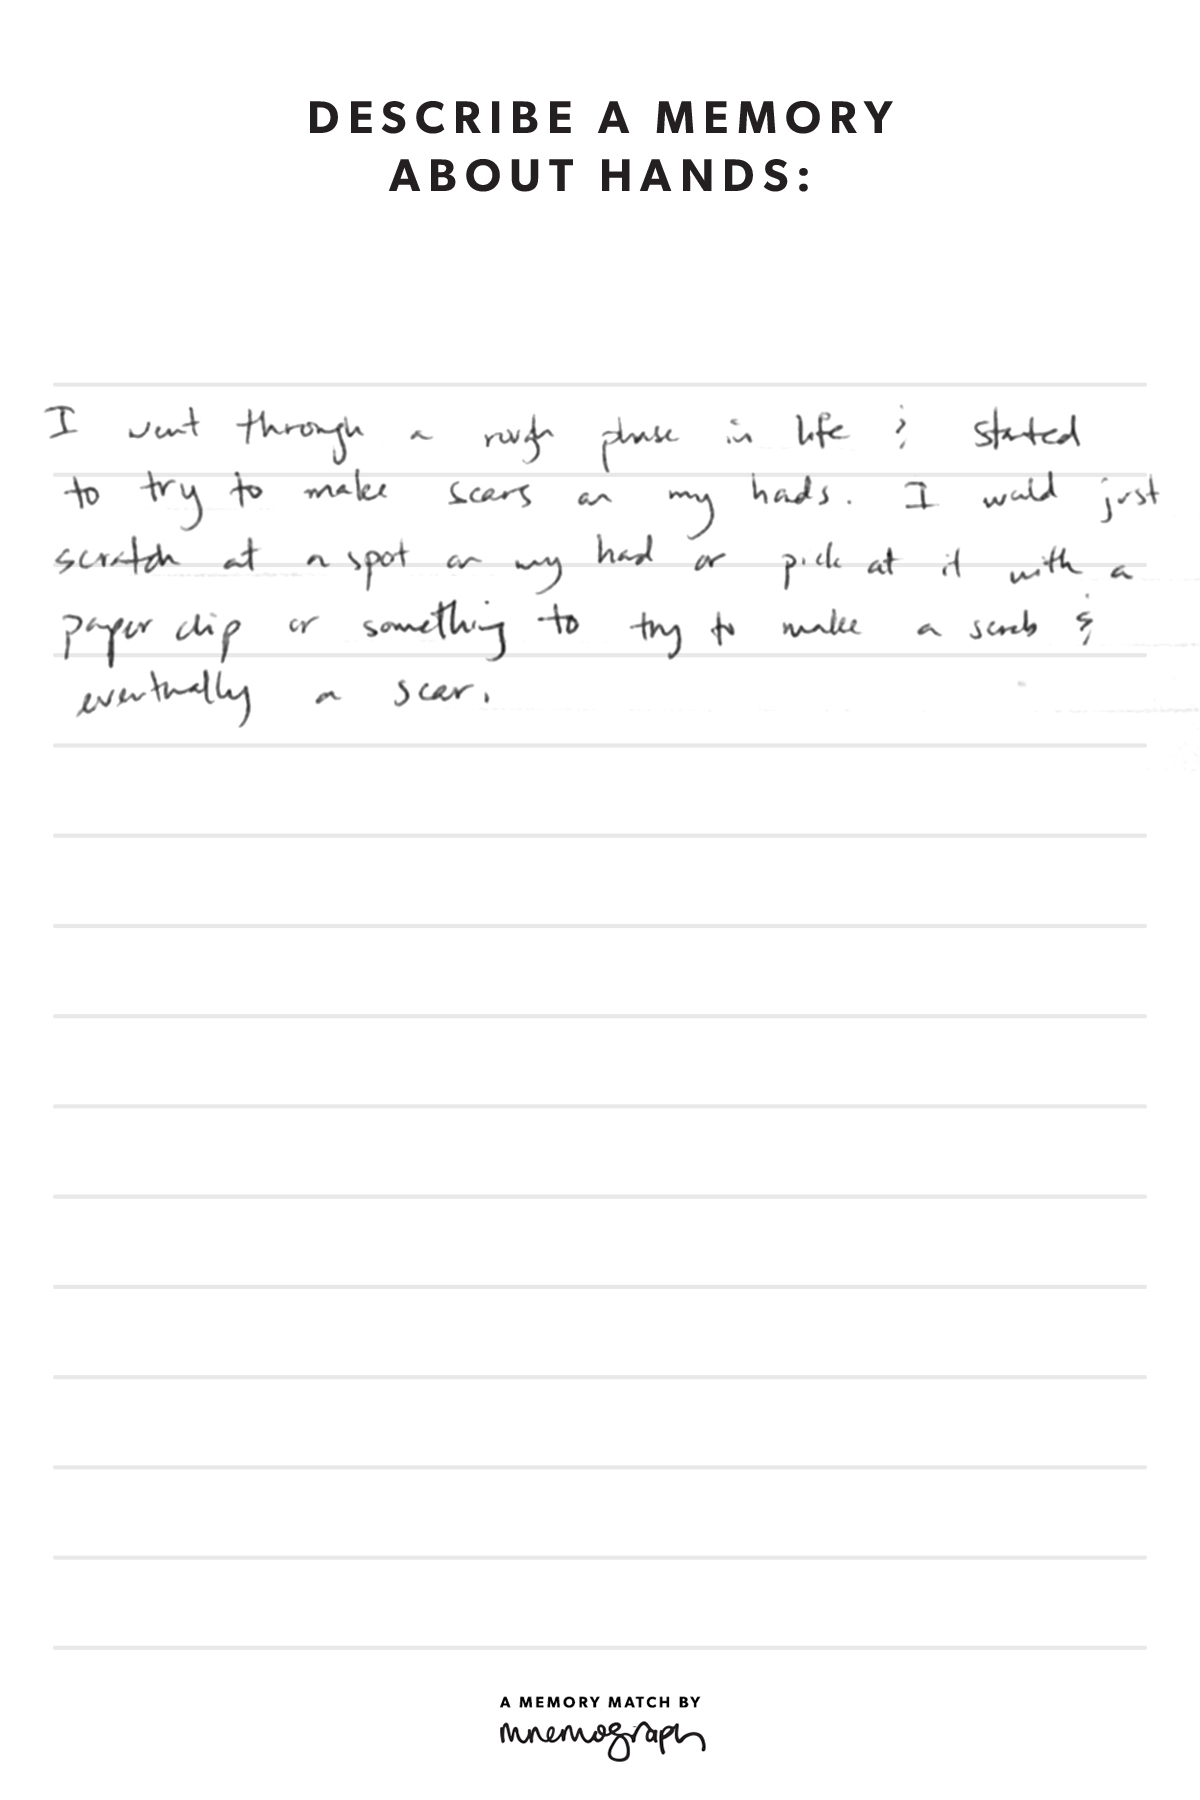 DESCRIBE A MEMORY
ABOUT HANDS:
I went through a rough phase in life & started
to try to make scars on my hands. I would just
scratch at a spot on my hand or pick at it with a
paper clip or something to try to make a scab &
eventually a scar.
A MEMORY MATCH BY
mnemograph